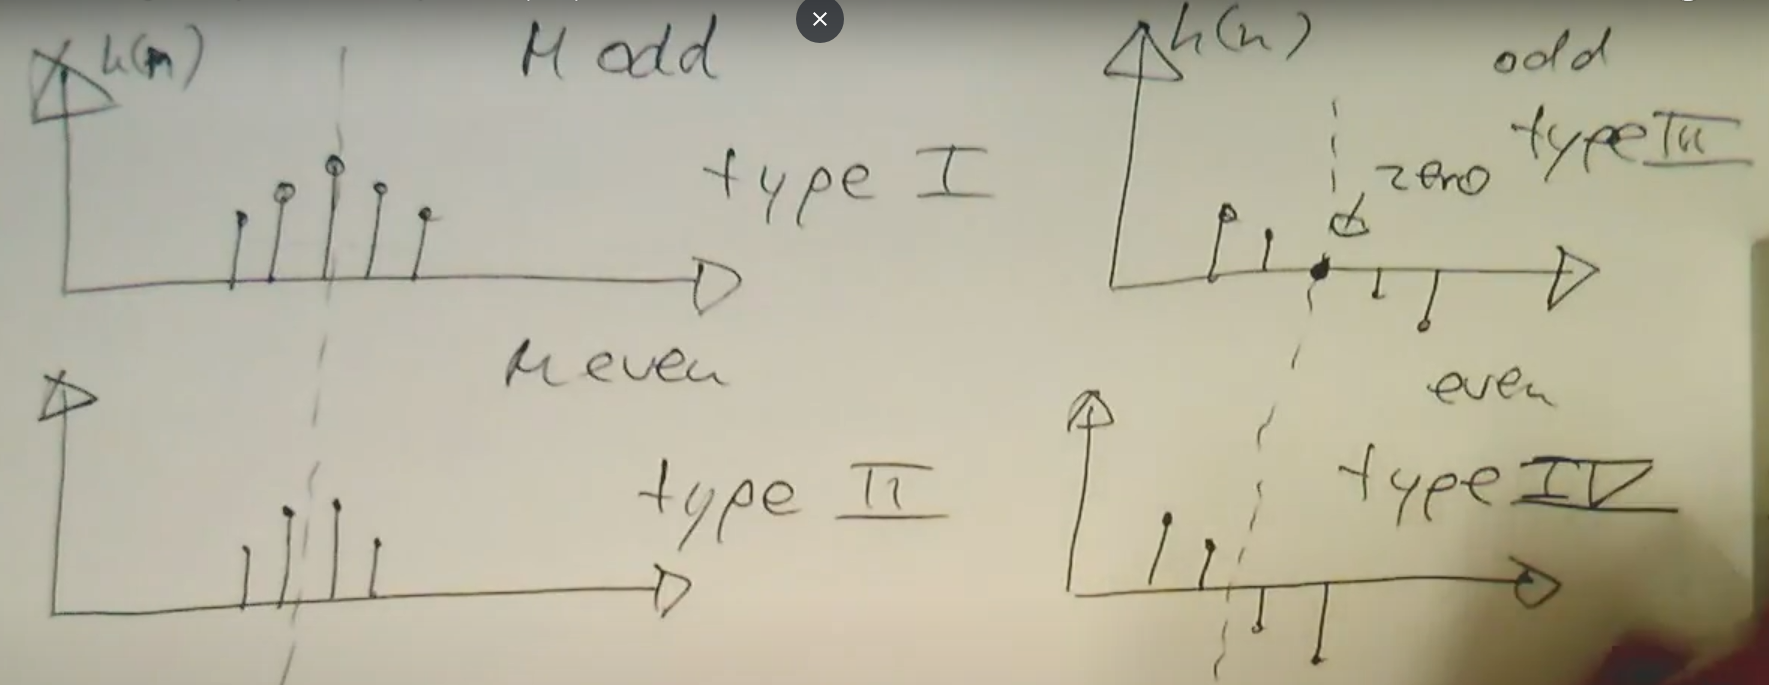 h(n)
M odd
type I
M even
type II
h(n)
odd
type III
zero
even
type IV